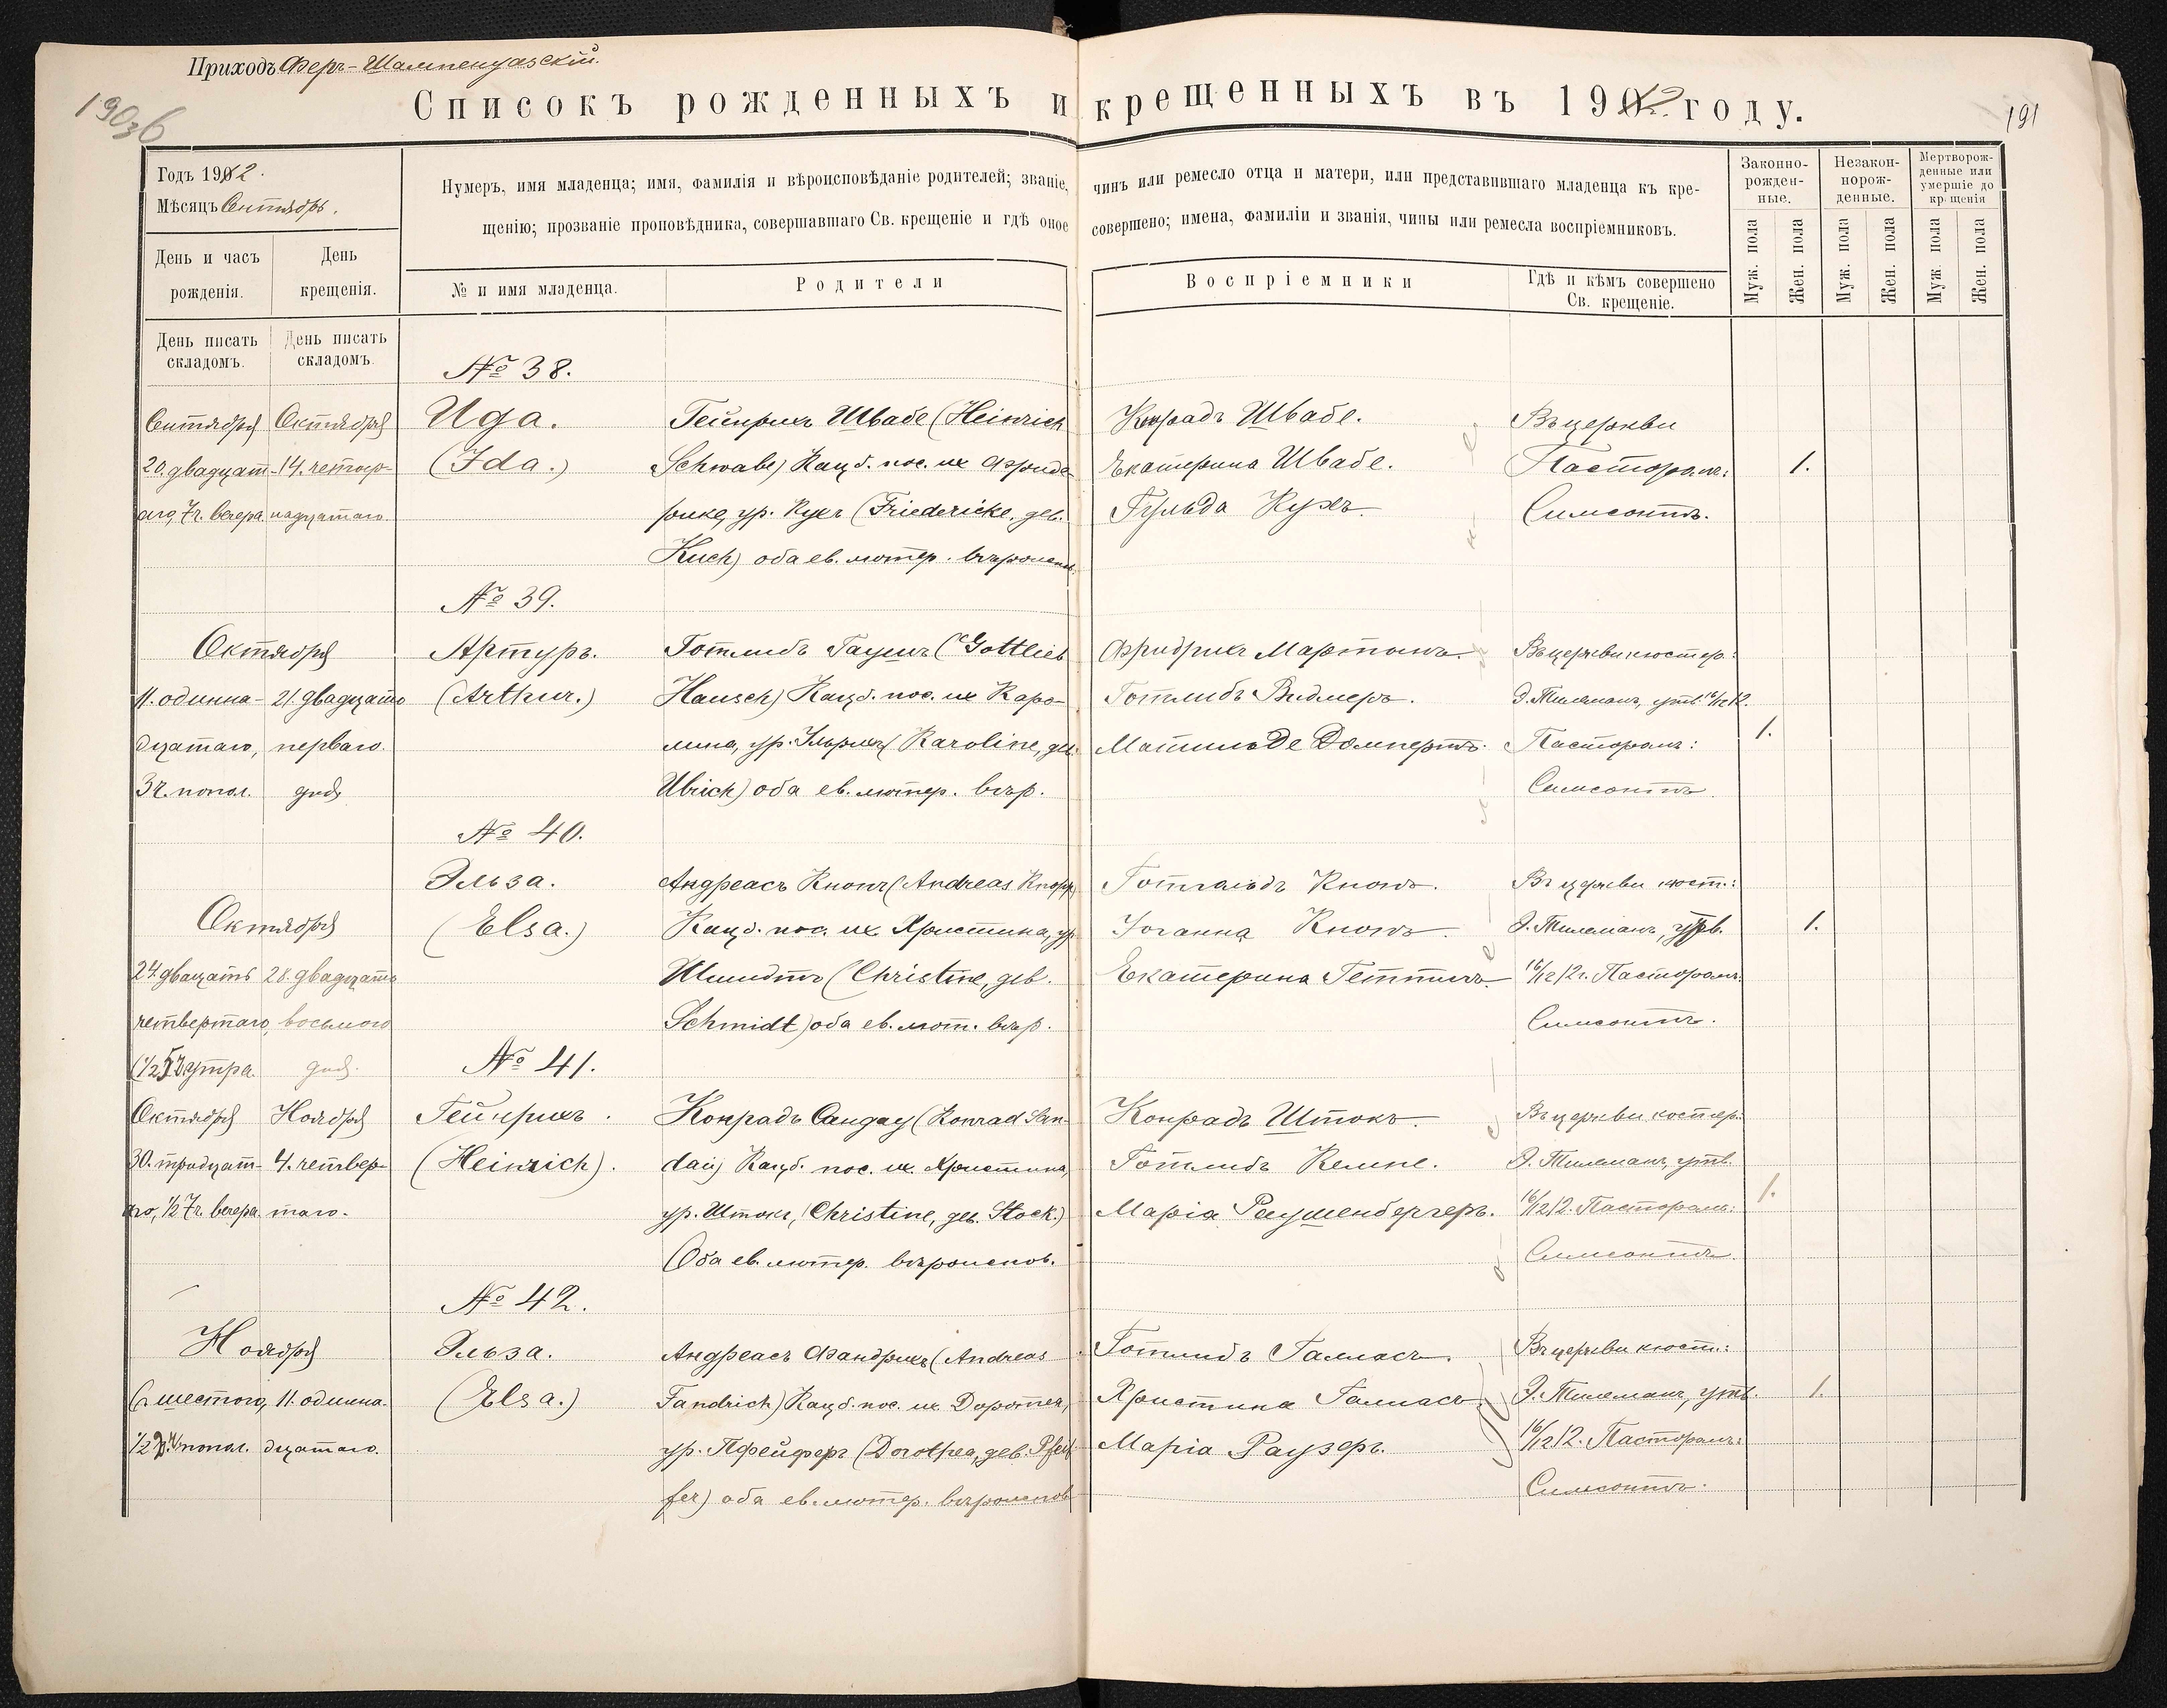 Приходъ Феръ-Шампенуазскій.
Списокъ рожденныхъ и крещенныхъ въ 1912 году.
191
Годъ 1912.
Мѣсяцъ Сентябрь.
Нумеръ, имя младенца; имя, фамилія и вѣроисповѣданіе родителей; званіе, чинъ или ремесло отца и матери, или представившаго младенца къ кре-
щенію; прозваніе проповѣдника, совершавшаго Св. крещеніе и гдѣ оное совершено; имена, фамиліи и званія, чины или ремесла воспріемниковъ.
Законно-
рожден-
ные.
Незакон-
норож-
денные.
Мертворож-
денные или
умершіе до
крещенія
Муж. пола
Жен. пола
Муж. пола
Жен. пола
Муж. пола
Жен. пола
День и часъ
рожденія.
День
крещенія.
№ и имя младенца.
Родители
Воспріемники
Гдѣ и кѣмъ совершено
Св. крещеніе.
День писать
складомъ.
День писать
складомъ.
№ 38.
Сентября
20. двадцат-
аго, 7ч. вечера
Октября
14. четыр-
надцатаго.
Ида.
(Ida.)
Гейнрихъ Швабе (Heinrich
Schwabe) Кацб. пос. их Фриде-
рике, ур. Кухъ (Friedericke, дев.
Kuch) оба ев. лютер. вѣроисп.
Конрадъ Швабе.
Екатерина Швабе.
Гульда Кухъ.
Въ церкви
Пасторомъ:
Симсонтъ.
1.
№ 39.
Октября
11. одинна-
дцатаго,
3ч. попол.
21. двадцать
перваго.
дня
Артуръ.
(Arthur.)
Готлибъ Гаушъ (Gottlieb
Hausch) Кацб. пос. их Каро-
лина, ур. Ульрихъ (Karoline, дев.
Ulrich) оба ев. лютер. вѣр.
Фридрихъ Мартынъ.
Готлибъ Видмеръ.
Матильде Домпертъ.
Въ церкви кюстер:
Э. Тилеманъ, утв. 16/12 12.
Пасторомъ:
Симсонтъ.
1.
№ 40.
Октября
24. двацать
четвертаго,
1/2 5 ч. утра.
28. двадцать
восьмого
дня.
Эльза.
(Elsa.)
Андреасъ Кнопъ (Andreas Knopp)
Кацб. пос. их Христина, ур.
Шмидтъ (Christine, дев.
Schmidt) оба ев. лют. вѣр.
Готгольдъ Кнопъ.
Іоганна Кнопъ.
Екатерина Геттихъ.
Въ церкви кюст.:
Э. Тилеманъ, утв.
16/12 12г. Пасторомъ:
Симсонтъ.
1.
№ 41.
Октября
30. тридцат-
го, 1/2 7ч. вечера
Ноября
4. четвер-
таго.
Гейнрихъ.
(Heinrich).
Конрадъ Сандау (Konrad San-
dau) Кацб. пос. их Христина,
ур. Штокъ, (Christine, дев. Stock.)
Оба ев. лютер. вѣроиспов.
Конрадъ Штокъ.
Готлибъ Кемпе.
Марія Раушенбергеръ.
Въ церкви кюстер:
Э. Тилеманъ, утв.
16/12 12. Пасторомъ:
Симсонтъ.
1.
№ 42.
Ноября
6. шестого,
попол.
11. одинна-
дцатаго.
Эльза.
(Elsa.)
Андреасъ Фандрихъ (Andreas
Fandrich) Кацб. пос. их Доротея,
ур. Пфейферъ (Dorothea, дев. Pfeif-
fer) оба ев. лютер. вѣроиспов.
Готлибъ Галласъ.
Христина Галласъ.
Марія Раузеръ.
Въ церкви кюст.:
Э. Тилеманъ, утв.
16/12 12. Пасторомъ:
Симсонтъ.
1.